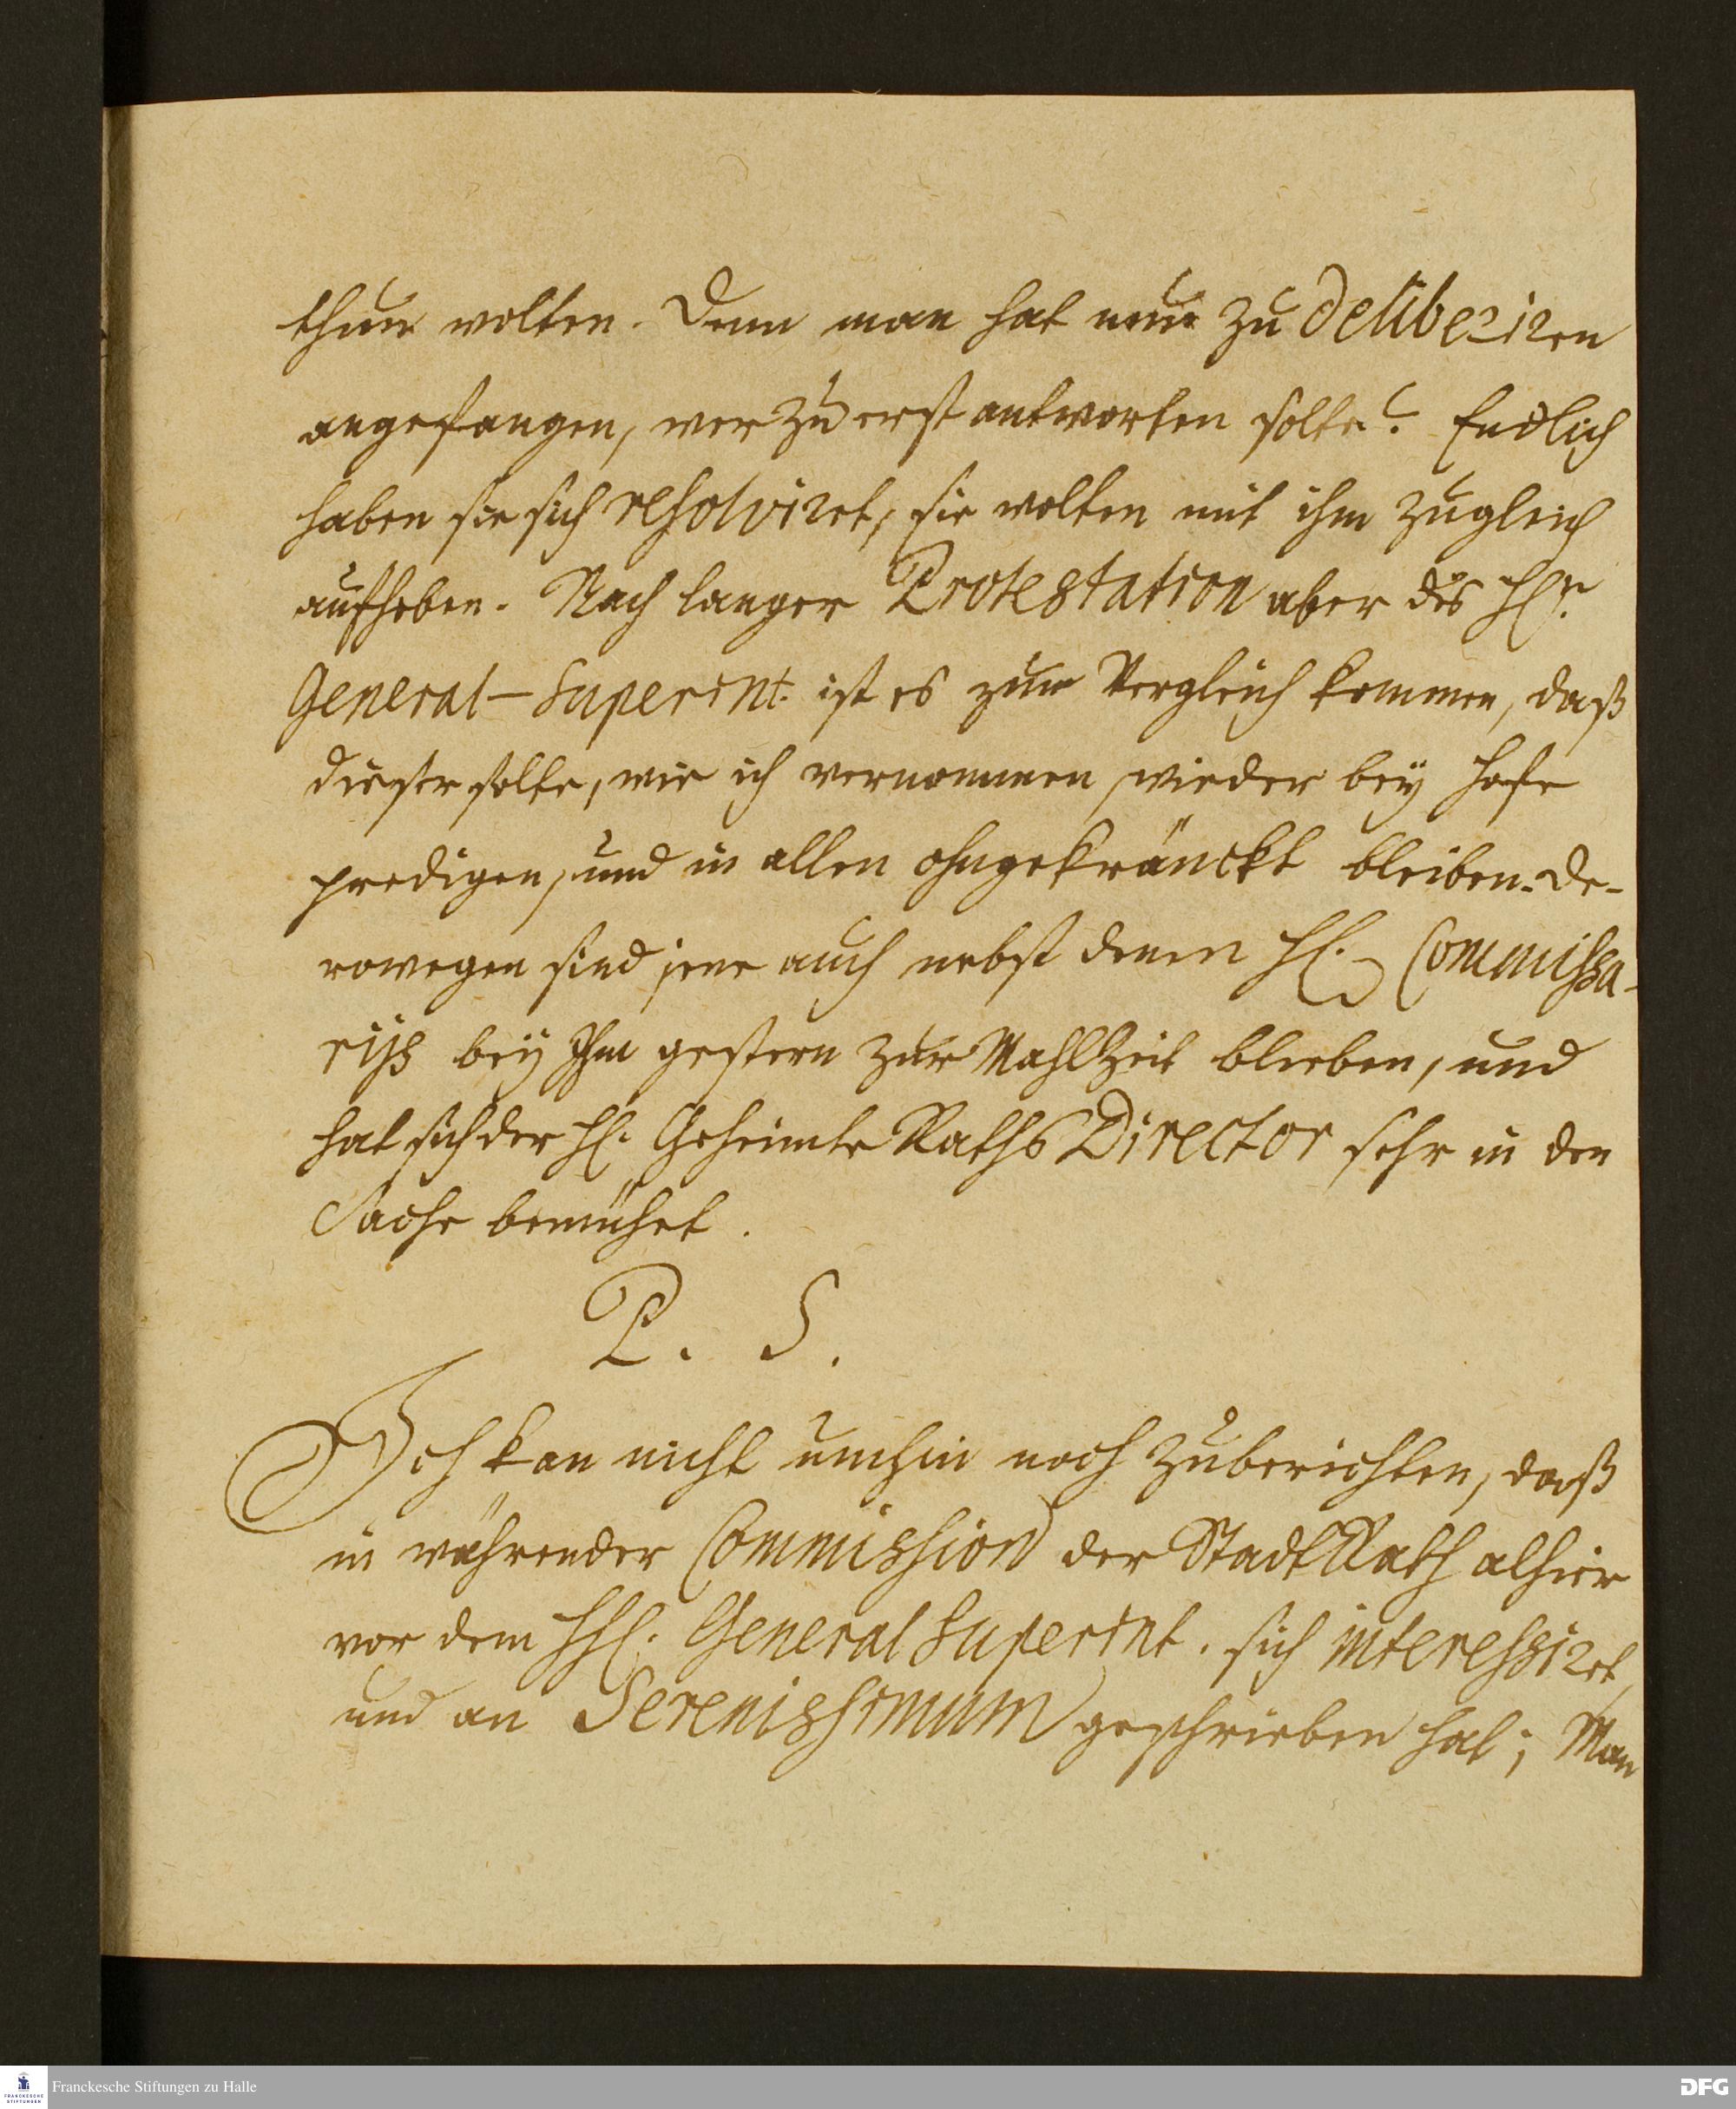 thun wolten. Denn man hat nun zu deliberiren
angefangen, wer zu erst antworten solte? Endlich
haben sie sich resolviret, sie wolten mit ihm zugleich
aufheben. Nach langer Protestation aber des H. 
General-Superint. ist es zum Vergleich kommen, daß
dieser solte, wie ich vernommen, wieder bey Hofe
predigen, und in allen ohngekränckt bleiben. De-
rowegen sind jene auch nebst denen H. Commissa-
rijs bey Ihm gestern zur Mahlzeit blieben, und
hat sich der H. Geheimte Raths Director sehr in der
Sache bemühet.
P. S.
Ich kan nicht umhin noch zuberichten, daß
in währender Commission der StadtRath alhier
vor dem HH. General Superint. sich interessiret,
und an Serenissimum geschrieben hat; Man
Franckesche Stiftungen zu Halle
FRANCKESCHE
STIFTUNGEN
DFG